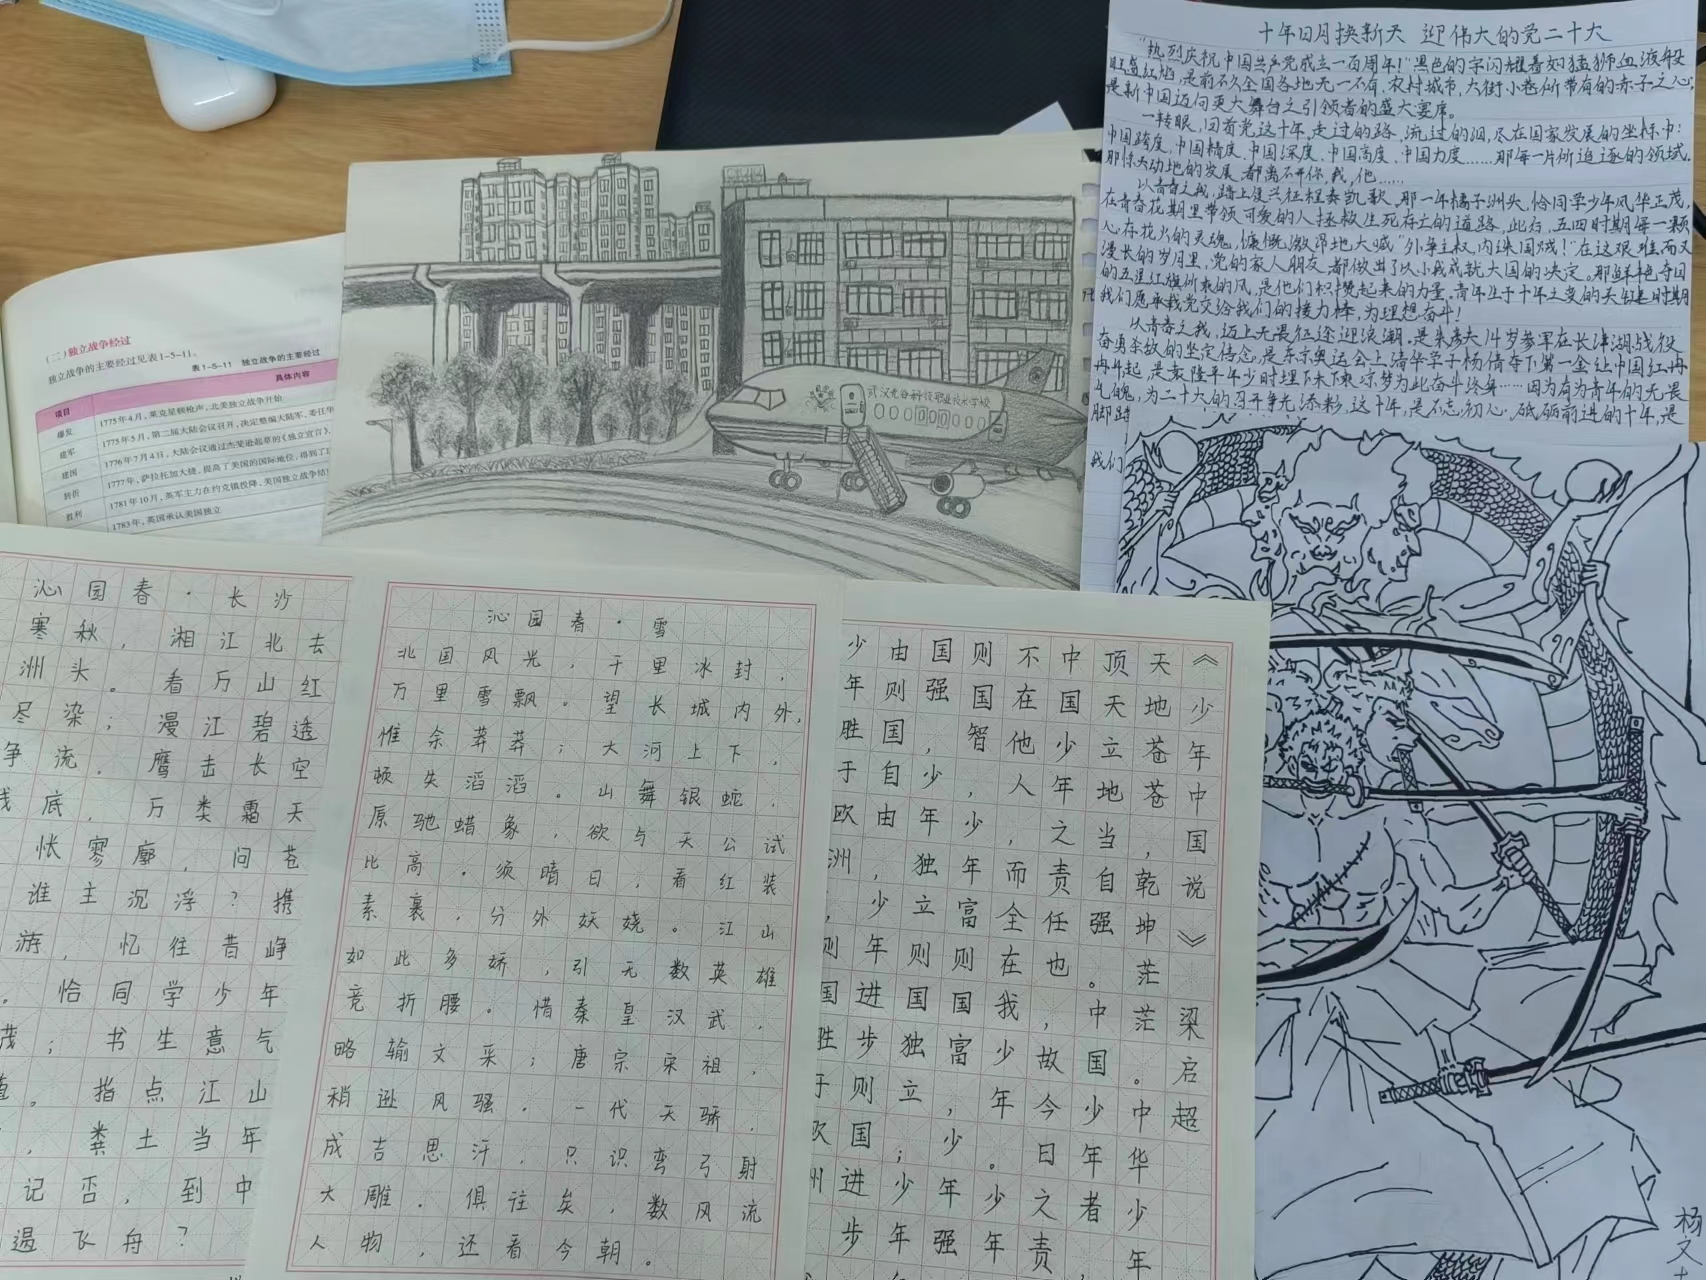 十年日月换新天 迎伟大的党二十大
“热烈庆祝中国共产党成立一百周年!”黑色的字闪耀着如猛狮血液般
旺盛红焰,是前不久全国各地无一不有,农村城市,大街小巷所带有的赤子之心,
是新中国迈向更大舞台之引领者的盛大宴席。
一转眼,回首党这十年,走过的路,流过的泪,尽在国家发展的坐标中:
中国跨度、中国精度、中国深度、中国高度、中国力度……那每一片所追逐的领域,
那惊天动地的发展,都离不开你,我,他……
以青春之我,踏上复兴征程奏凯歌。那一年橘子洲头,恰同学少年风华正茂,
在青春花期里带领可爱的人拯救生死存亡的道路,此后,五四时期每一颗
心存花火的灵魂,慷慨激昂地大喊“外争主权,内诛国贼!”在这艰难而又
漫长的岁月里,党的家人朋友,都做出了以小我成就大国的决定。那鲜艳夺目
的五星红旗所乘的风,是他们积攒起来的力量。青年生于十年之变的天红时期
我们愿承载党交给我们的接力棒,为理想奋斗!
以青春之我,迈上无畏征途迎浪潮。是朱彦夫14岁参军在长津湖战役
奋勇杀敌的坚定信念,是东京奥运会上清华学子杨倩夺下第一金让中国红冉
冉升起,是袁隆平年少时埋下禾下乘凉梦为此奋斗终身……因为有为青年的无畏
气魄,为二十大的召开争光添彩,这十年,是不忘初心,砥砺前进的十年,是
脚踏
我们
武汉光谷科技职业技术学校
(二)独立战争经过
独立战争的主要经过见表1-5-11。
表1-5-11 独立战争的主要经过
项目 具体内容
爆发 1775年4月,莱克星顿枪声,北美独立战争开始
建军 1775年5月,第二届大陆会议召开,决定整编大陆军,委任华
建国 1776年7月4日,大陆会议通过杰斐逊起草的《独立宣言》,
转折 1777年,萨拉托加大捷,提高了美国的国际地位,得到了
胜利 1781年10月,英军主力在约克镇投降,美国独立战争结
1783年,英国承认美国独立
沁园春·长沙
寒秋,湘江北去
洲头。看万山红
尽染;漫江碧透
争流。鹰击长空
浅底,万类霜天
怅寥廓,问苍
谁主沉浮?携
游,忆往昔峥
。恰同学少年
茂;书生意气
遒。指点江山
,粪土当年
记否,到中
遏飞舟?
沁园春·雪
北国风光,千里冰封,
万里雪飘。望长城内外,
惟余莽莽;大河上下,
顿失滔滔。山舞银蛇,
原驰蜡象,欲与天公试
比高。须晴日,看红装
素裹,分外妖娆。江山
如此多娇,引无数英雄
竞折腰。惜秦皇汉武,
略输文采;唐宗宋祖,
稍逊风骚。一代天骄,
成吉思汗,只识弯弓射
大雕。俱往矣,数风流
人物,还看今朝。
《少年中国说》 梁启超
天地苍苍,乾坤茫茫。中华少年
顶天立地当自强。中国少年者
中国少年之责任也。故今日之责
不在他人,而全在我少年。少年
则国智,少年富则国富,少年强
国强,少年独立则国独立;少年
由则国自由,少年进步则国进步
少年胜于欧洲,则国胜于欧洲
杨
文